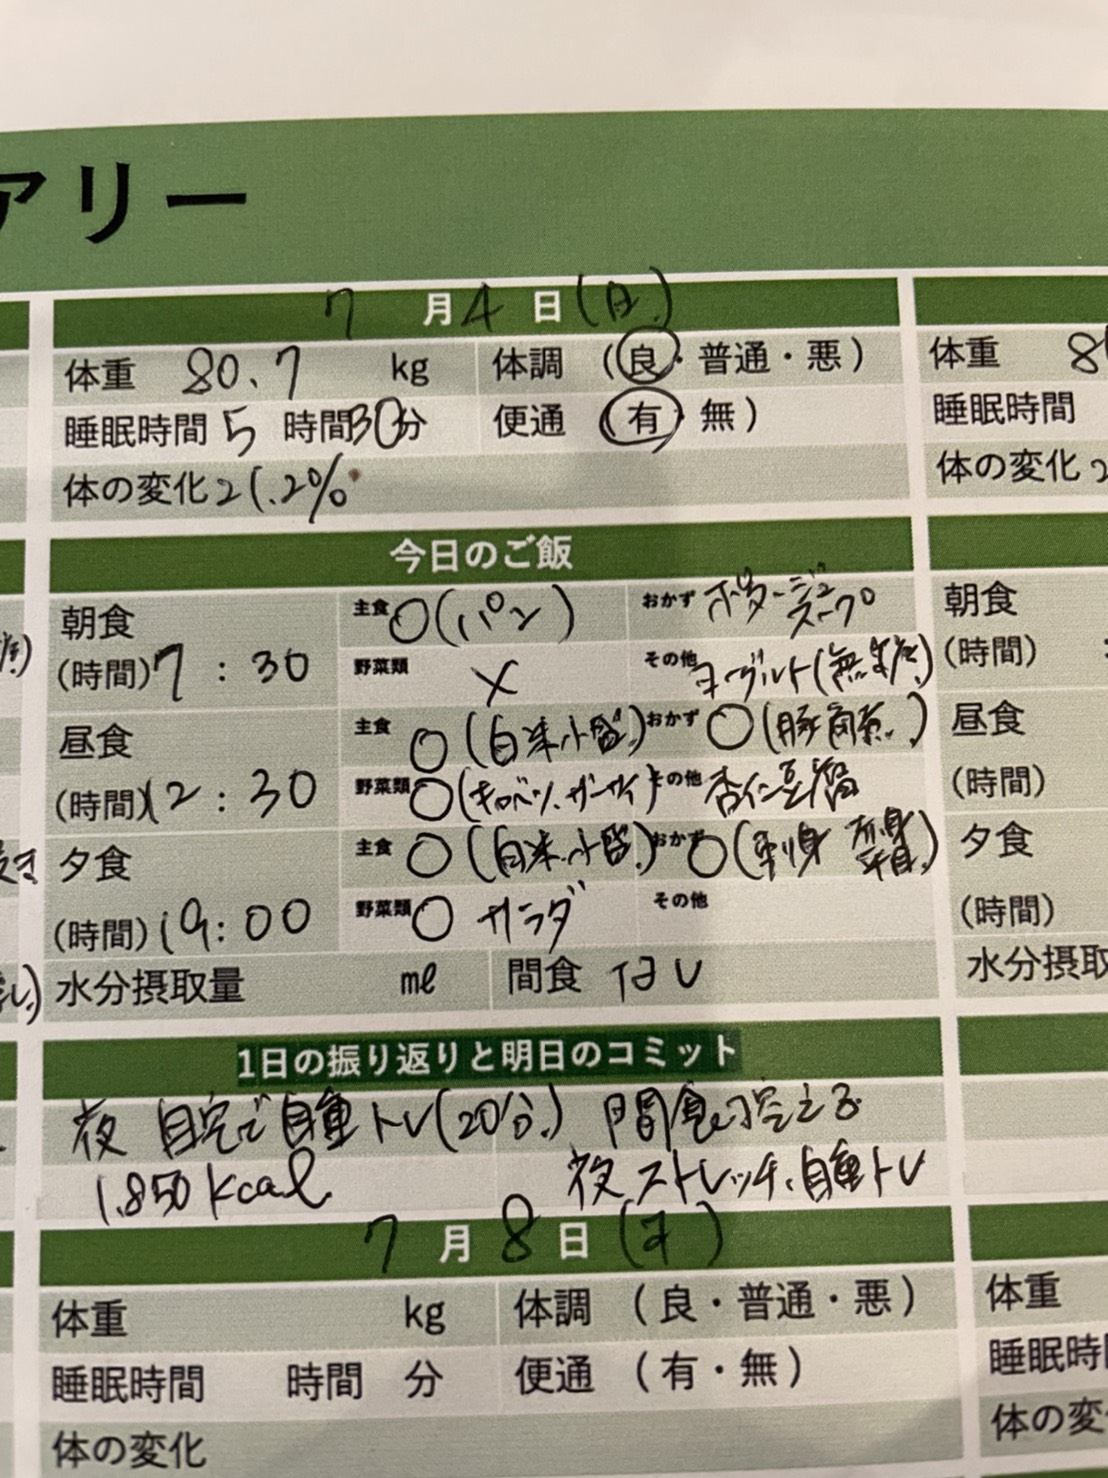 アリー
7月4日(日.)
体重 80.7 kg 体調 (良・普通・悪)
睡眠時間 5 時間 30分 便通 (有・無)
体の変化 21.2%
今日のご飯
朝食 主食 ○(パン) おかず ポタージュスープ
(時間) 7:30 野菜類 × その他 ヨーグルト(無糖)
昼食 主食 ○(白米小盛.) おかず ○(豚角煮.)
(時間) 12:30 野菜類 ○(キャベツ、ザーサイ) その他 杏仁豆腐
夕食 主食 ○(白米.小盛.) おかず ○(刺身
(時間) 19:00 野菜類 ○ サラダ その他
水分摂取量 ml 間食 なし
1日の振り返りと明日のコミット
夜 自宅で自重トレ(20分.) 間食は控える
1.850kcal 夜 ストレッチ、自重トレ
7月8日
体重 kg 体調 (良・普通・悪)
睡眠時間 時間 分 便通 (有・無)
体の変化
体重
睡眠時間
体の変化
朝食
(時間)
昼食
(時間)
夕食
(時間)
水分摂取
体重
睡眠時間
体の変